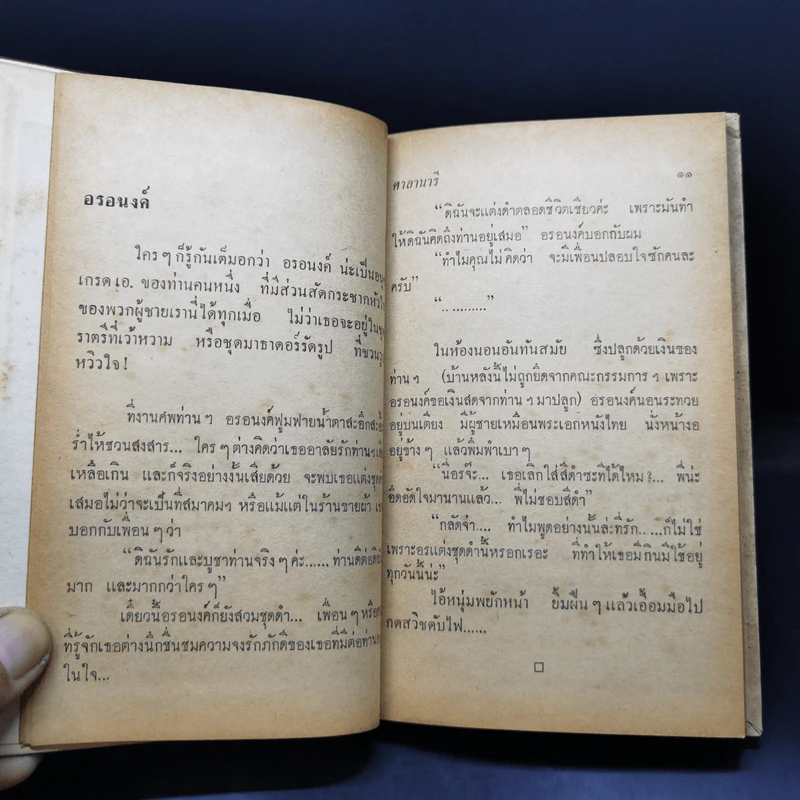 อรอนงค์
ใคร ๆ ก็รู้กันเต็มอกว่า อรอนงค์ น่ะเป็น
เกรด เอ. ของท่านคนหนึ่ง ที่มีส่วนสัดกระชากหัวใ
ของพวกผู้ชายเรานี่ได้ทุกเมื่อ ไม่ว่าเธอจะอยู่ใน
ราตรีที่เว้าหวาม หรือชุดมาธาดอร์รัดรูป ที่ชวน
หวิวใจ !
ที่งานศพท่าน ฯ อรอนงค์ฟูมฟายน้ำตาสะอึกสะอื้
ร่ำไห้ชวนสงสาร... ใคร ๆ ต่างคิดว่าเธออาลัยรักท่าน ฯ
เหลือเกิน และก็จริงอย่างงั้นเสียด้วย จะพบเธอแต่งชุด
เสมอไม่ว่าจะเป็นที่สมาคมฯ หรือแม้แต่ในร้านขายผ้า เธ
บอกกับเพื่อน ๆ ว่า
“ดิฉันรักและบูชาท่านจริง ๆ ค่ะ...... ท่านดีต่อดิฉั
มาก และมากกว่าใคร ๆ”
เดี๋ยวนี้อรอนงค์ก็ยังสวมชุดดำ... เพื่อน ๆ หรือ
ที่รู้จักเธอต่างนึกชื่นชมความจงรักภักดีของเธอที่มีต่อท่าน
ในใจ...
ศาลานารี ๑๑
“ดิฉันจะแต่งดำตลอดชีวิตเชียวค่ะ เพราะมันทำ
ให้ดิฉันคิดถึงท่านอยู่เสมอ” อรอนงค์บอกกับผม
“ทำไมคุณไม่คิดว่า จะมีเพื่อนปลอบใจซักคนละ
ครับ”
“...........”
ในห้องนอนอันทันสมัย ซึ่งปลูกด้วยเงินของ
ท่าน ฯ (บ้านหลังนี้ไม่ถูกยึดจากคณะกรรมการ ฯ เพราะ
อรอนงค์ขอเงินสดจากท่าน ฯ มาปลูก) อรอนงค์นอนระทวย
อยู่บนเตียง มีผู้ชายเหมือนพระเอกหนังไทย นั่งหน้างอ
อยู่ข้าง ๆ แล้วพึมพำเบา ๆ
“นี่อรจ๊ะ... เธอเลิกใส่สีดำซะทีได้ไหม ?... พี่น่ะ
อึดอัดใจมานานแล้ว... พี่ไม่ชอบสีดำ”
“กลัดจ๋า.... ทำไมพูดอย่างนั้นล่ะที่รัก......ก็ไม่ใช่
เพราะอรแต่งชุดดำนี้หรอกเรอะ ที่ทำให้เธอมีกินมีใช้อยู่
ทุกวันนี้น่ะ”
ไอ้หนุ่มพยักหน้า ยิ้มฝืน ๆ แล้วเอื้อมมือไป
กดสวิชดับไฟ......